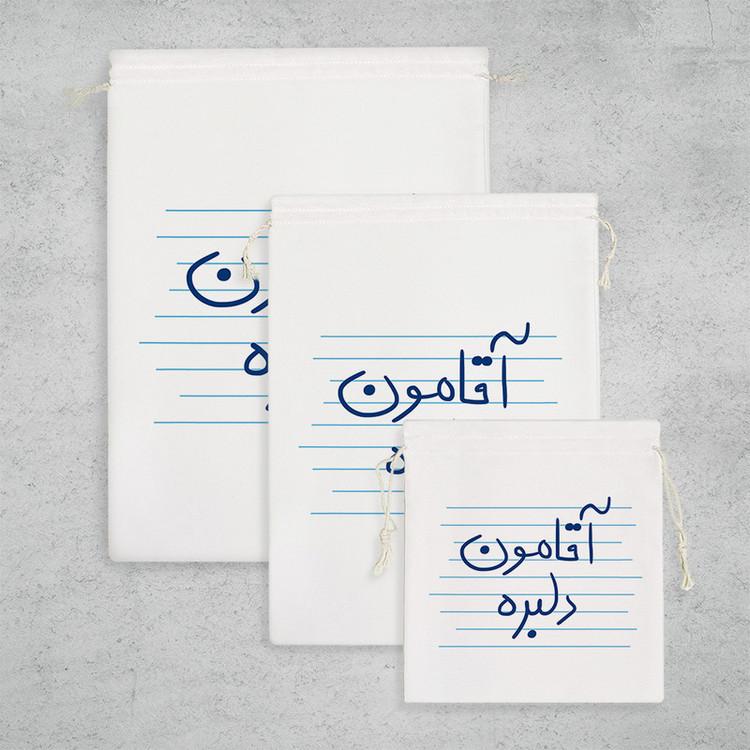 ن
ه
آقامون
آقامون
دلبره